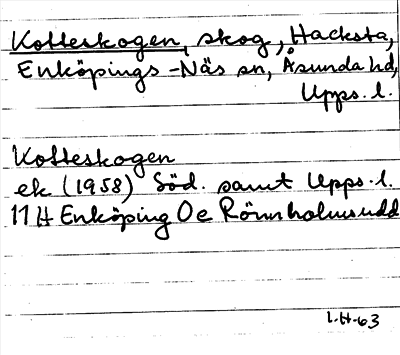 Kotteskogen, skog, Hacksta,
Enköpings-Näs sn, Åsunda hd,
Upps. l.
Kotteskogen
ek (1958) Söd. samt Upps. l.
11H Enköping Oe Rönnholmsudd
1-H-63